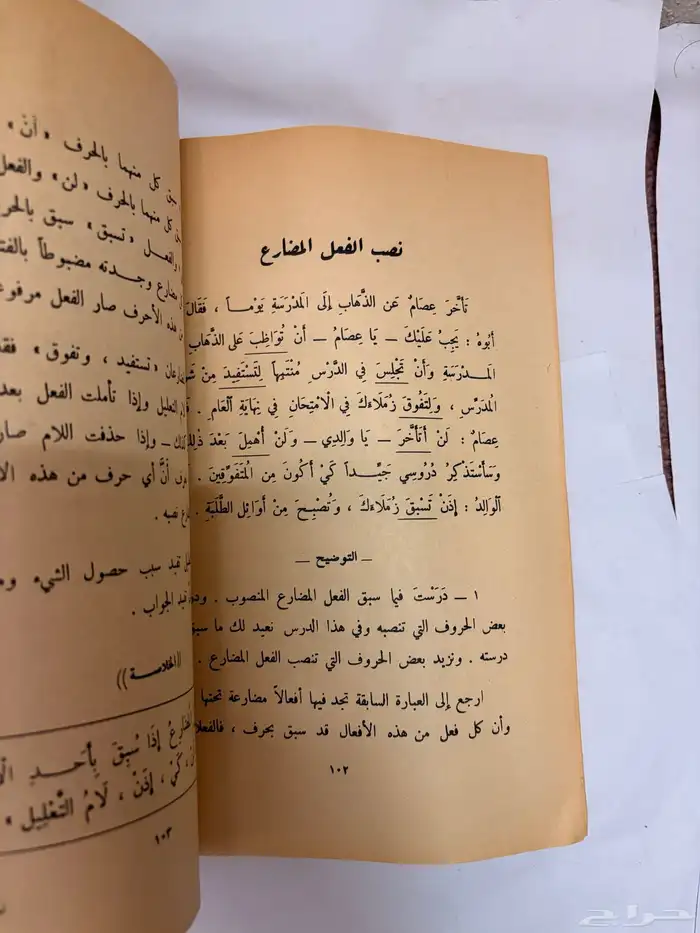 نصب الفعل المضارع
تَأَخَّرَ عِصَامٌ عَنِ الذَّهَابِ إِلَى الْمَدْرَسَةِ يَوْمـاً ، فَقَالَ
أَبُوهُ : يَجِبُ عَلَيْكَ ــ يَا عِصَامُ ــ أَنْ تُوَاظِبَ عَلَى الذَّهَابِ
الْمَــدْرَسَةِ وَأَنْ تَجْلِسَ فِي الدَّرْسِ مُنْتَبِهاً لِتَسْتَفِيدَ مِنْ
المُدَرِّسِ ، وَلِتَفُوقَ زُمَلَاءَكَ فِي الْامْتِحَانِ فِي نِهَايَةِ الْعَامِ .
عِصَامٌ : لَنْ أَتَأَخَّرَ ــ يَا وَالِدِي ــ وَلَنْ أُهْمِلَ بَعْدَ ذَلِكَ
وَسَأَسْتَذْكِرُ دُرُوسِي جَيِّـداً كَيْ أَكُونَ مِنَ الْمُتَفَوِّقِينَ .
الْوَالِدُ : إِذَنْ تَسْبِقَ زُمَلَاءَكَ ، وَتُصْبِحَ مِنْ أَوَائِلِ الطَّلَبَةِ .
ــ التوضيح ــ
١ ــ دَرَسْتَ فيما سبق الفعل المضارع المنصوب .
بعض الحروف التي تنصبه وفي هذا الدرس نعيد لك ما سبق
درسته . ونزيد بعض الحروف التي تنصب الفعل المضارع .
ارجع إلى العبارة السابقة تجد فيها أفعالاً مضارعة تحتها
وأن كل فعل من هذه الأفعال قد سبق بحرف ،
١٠٢
سبق كل منهما بالحرف « أَنْ »
كل منهما بالحرف « لن » والفعل
والفعــل « تسبق » سبق
مضارع وجـدته مضبوطاً
هذه الأحرف صار الفعل
« تستفيد ، وتفوق »
التعليل وإذا تأملت الفعل بعد
ــ وإذا حذفت اللام
أنَّ أي حرف من هذه
نصبه .
تفيد سبب حصول الشيء
الجواب .
((الخلاصـة))
إِذَا سُبِقَ بِأَحَــدِ
، كَيْ ، إِذَنْ ، لَامُ التَّعْلِيلِ »
١٠٣
حراج